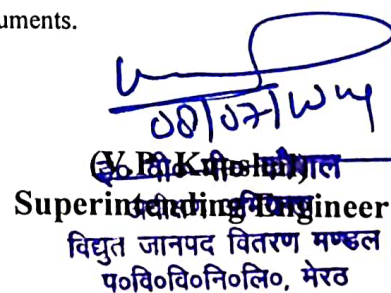 uments.
08/07/
(V.P.
Superintending Engineer
विद्युत जानपद वितरण मण्डल
प०वि०वि०नि०लि०, मेरठ